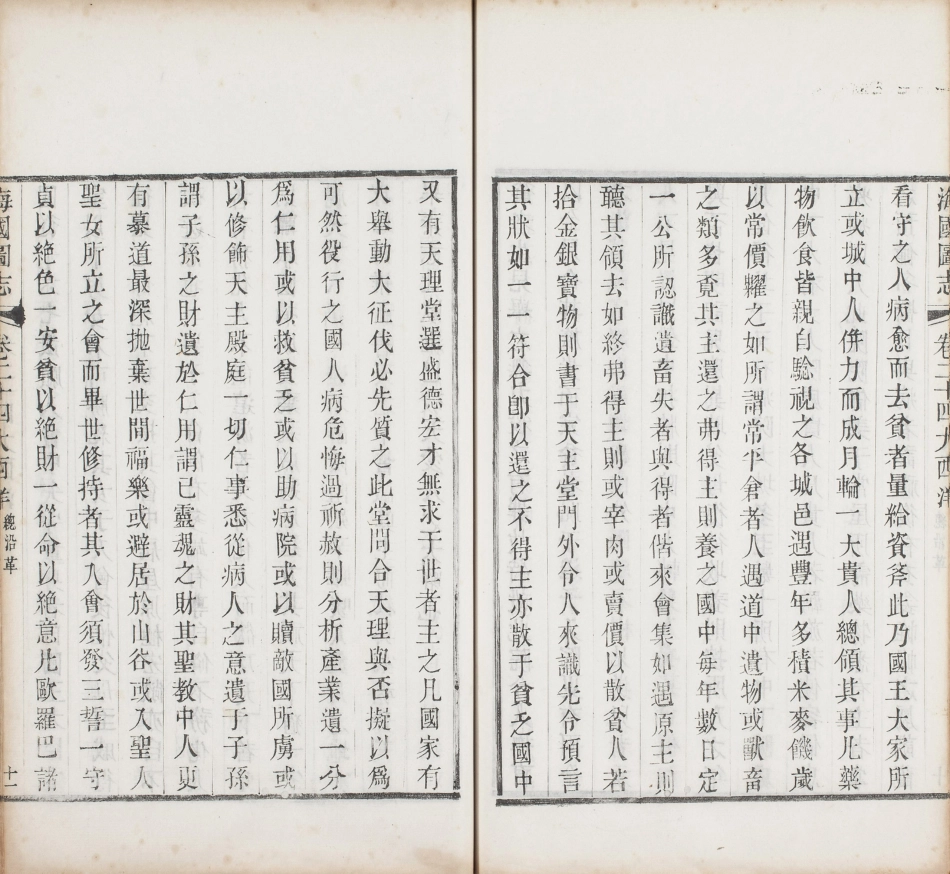 海國圖志 卷二十四大西洋
看守之人病愈而去貧者量給資斧此乃國王大家所
立或城中人併力而成月輪一大貴人總領其事凡藥
物飮食皆親自驗視之各城邑遇豐年多積米麥饑歲
以常價糶之如所謂常平倉者人遇道中遺物或獸畜
之類多覓其主還之弗得主則養之國中每年數日定
一公所認識遺畜失者與得者偕來會集如遇原主則
聽其領去如終弗得主則或宰肉或賣價以散貧人若
拾金銀寶物則書于天主堂門外令人來識先令預言
其狀如一一符合卽以還之不得主亦散于貧乏國中
又有天理堂選盛德宏才無求于世者主之凡國家有
大舉動大征伐必先質之此堂問合天理與否擬以爲
可然後行之國人病危悔過祈赦則分析產業遺一分
爲仁用或以救貧乏或以助病院或以贖敵國所虜或
以修飾天主殿庭一切仁事悉從病人之意遺于子孫
謂子孫之財遺於仁用謂己靈魂之財其聖教中人更
有慕道最深拋棄世間福樂或避居於山谷或入聖人
聖女所立之會而畢世修持者其入會須發三誓一守
貞以絕色一安貧以絕財一從命以絕意凡歐羅巴諸
海國圖志 卷二十四大西洋 總沿革 十一